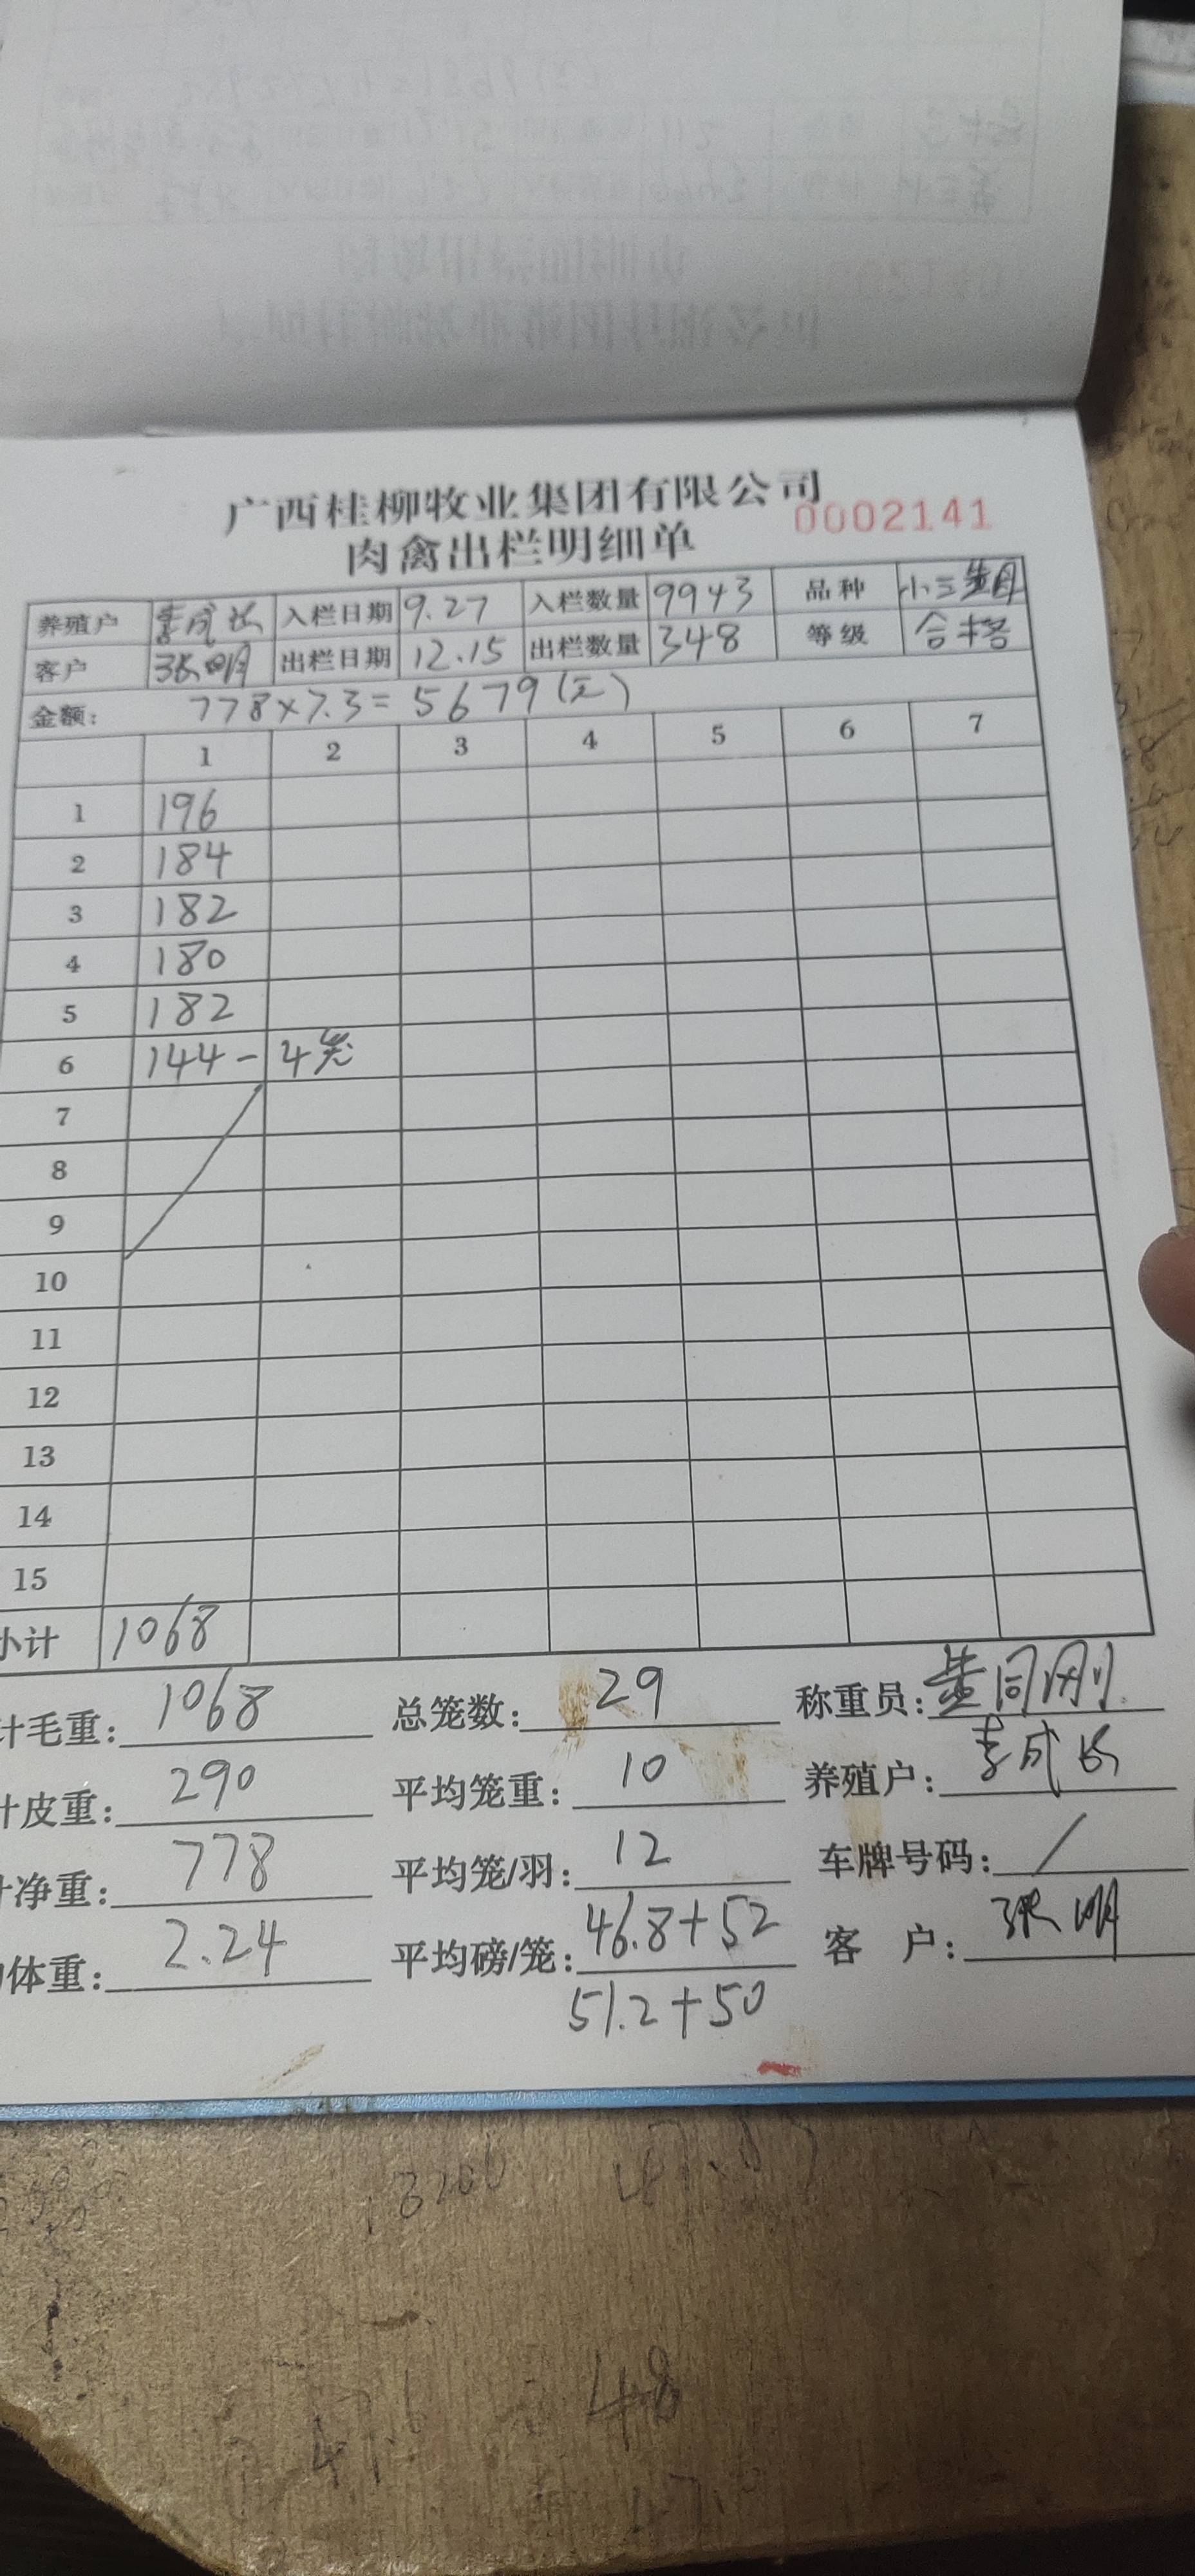 广西桂柳牧业集团有限公司
0002141
肉禽出栏明细单
养殖户 李成长 入栏日期 9.27 入栏数量 9943 品种
客户 张明 出栏日期 12.15 出栏数量 348 等级 合格
金额: 778×7.3=5679(元)
1 2 3 4 5 6 7
1 196
2 184
3 182
4 180
5 182
6 144-4笼
7
8
9
10
11
12
13
14
15
小计 1068
计毛重: 1068 总笼数: 29 称重员:
计皮重: 290 平均笼重: 10 养殖户: 李成长
净重: 778 平均笼/羽: 12 车牌号码: /
体重: 2.24 平均磅/笼: 46.8+52 客 户: 张明
51.2+50
48